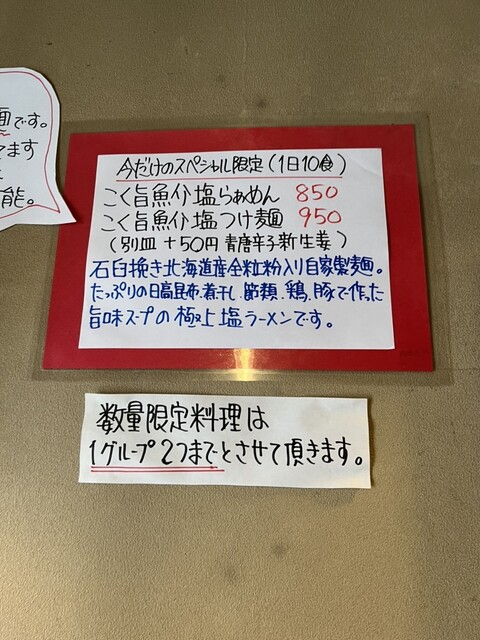 面です。
てます
能。
今だけのスペシャル限定(1日10食)
こく旨魚介塩らぁめん 850
こく旨魚介塩つけ麺 950
(別皿 +50円 青唐辛子新生姜)
石臼挽き北海道産全粒粉入り自家製麺。
たっぷりの日高昆布、煮干し、節類、鶏、豚で作った
旨味スープの極上塩ラーメンです。
数量限定料理は
1グループ2つまでとさせて頂きます。